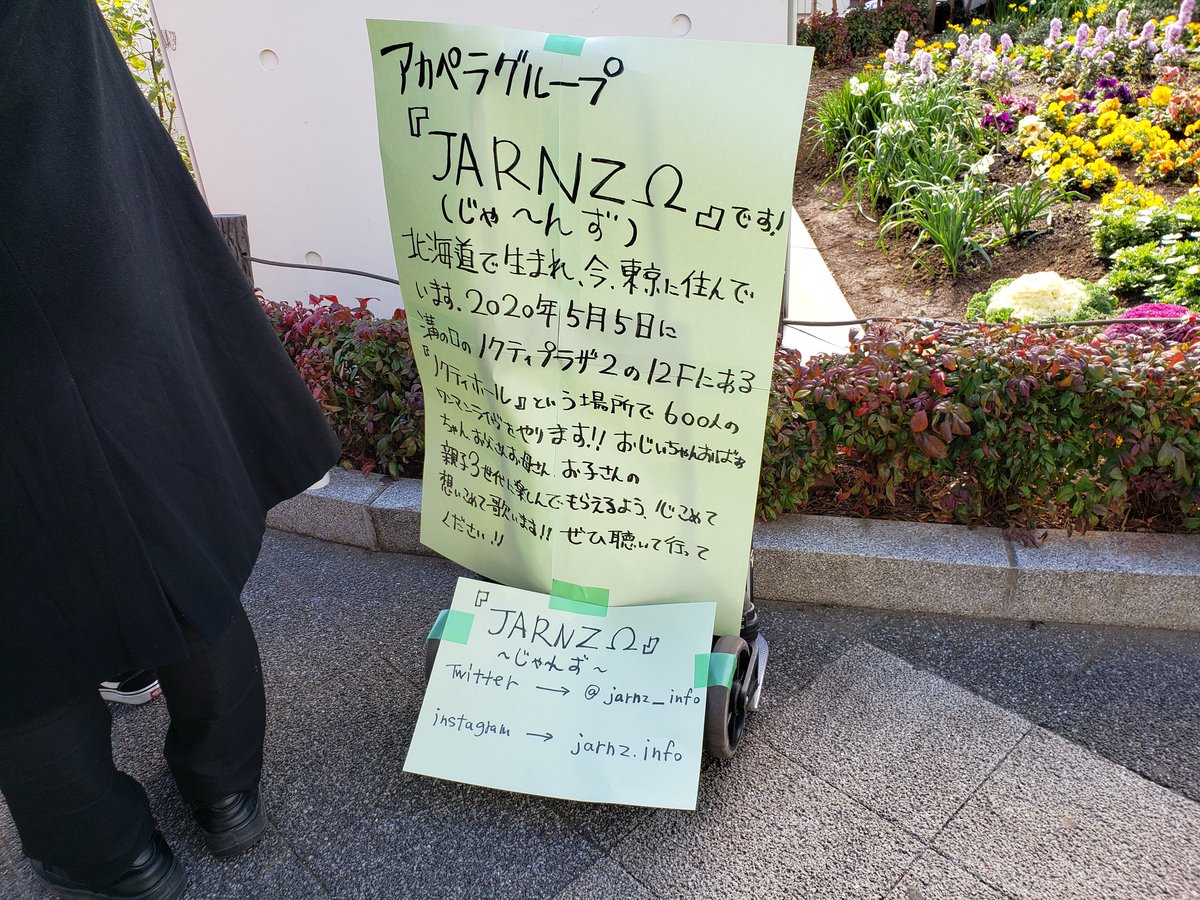 アカペラグループ
『JARNZΩ』です!
(じゃ〜んず)
北海道で生まれ、今、東京に住んで
います。2020年5月5日に
溝の口のノクティプラザ2の12Fにある
『ノクティホール』という場所で600人の
ワンマンライブをやります!! おじいちゃんおばあ
ちゃん、お父さんお母さん、お子さんの
親子3世代に楽しんでもらえるよう、心こめて
想いこめて歌います!! ぜひ聴いて行って
ください!!
『JARNZΩ』
〜じゃんず〜
Twitter → @jarnz_info
instagram → jarnz.info